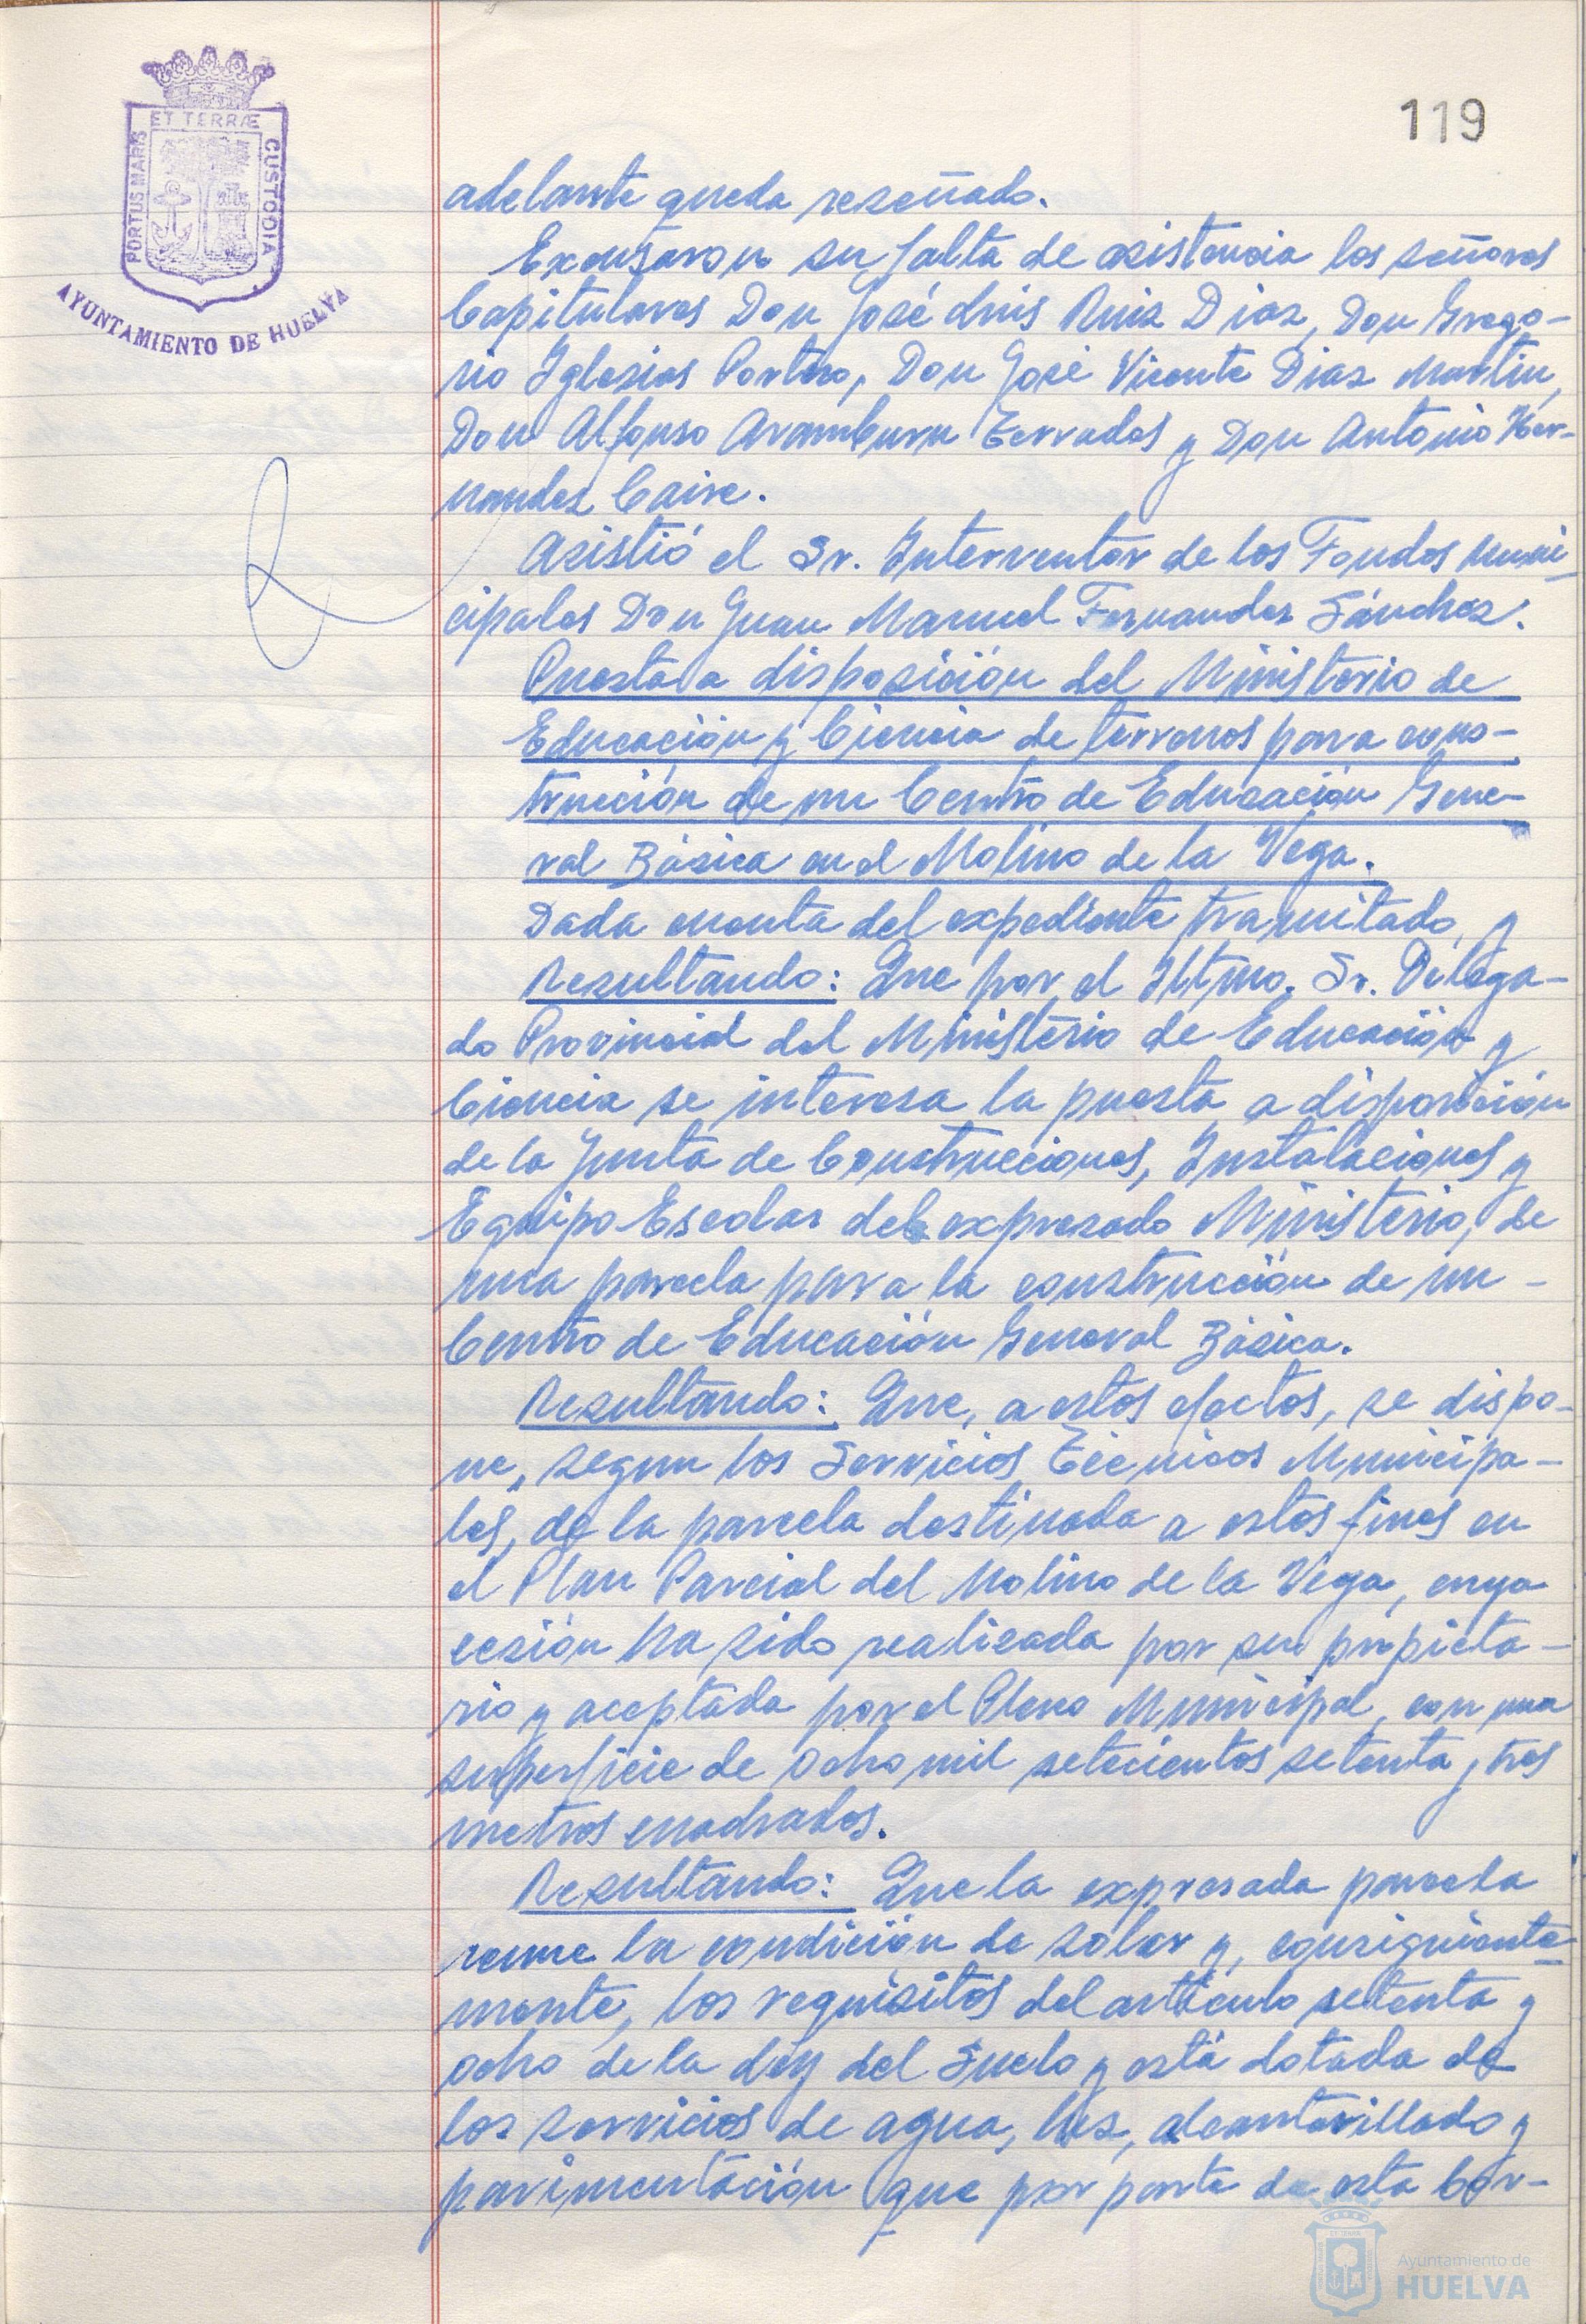 ET TERRÆ
PORTUS MARIS
CUSTODIA
AYUNTAMIENTO DE HUELVA
119
adelante queda reseñado.
Excusaron su falta de asistencia los señores
Capitulares Don José Luis Ruiz Diaz, Don Grego-
rio Iglesias Portero, Don José Vicente Diaz Martin,
Don Alfonso Aramburu Terrades y Don Antonio Her-
nandez Caire.
Asistió el Sr. Interventor de los Fondos Muni-
cipales Don Juan Manuel Fernandez Sánchez.
Puesta a disposición del Ministerio de
Educación y Ciencia de terrenos para cons-
trucción de un Centro de Educación Gene-
ral Básica en el Molino de la Vega.
Dada cuenta del expediente tramitado, y
Resultando: Que por el Iltmo. Sr. Delega-
do Provincial del Ministerio de Educación y
Ciencia se interesa la puesta a disposición
de la Junta de Construcciones, Instalaciones y
Equipo Escolar del expresado Ministerio, de
una parcela para la construcción de un -
Centro de Educación General Básica.
Resultando: Que, a estos efectos, se dispo-
ne, segun los Servicios Técnicos Municipa-
les, de la parcela destinada a estos fines en
el Plan Parcial del Molino de la Vega, cuya
cesión ha sido realizada por su propieta-
rio y aceptada por el Pleno Municipal, con una
superficie de ocho mil setecientos setenta y tres
metros cuadrados.
Resultando: Que la expresada parcela
reune la condición de solar y, consiguiente-
mente, los requisitos del artículo setenta y
ocho de la Ley del Suelo y está dotada de
los servicios de agua, luz, alcantarillado y
pavimentación que por parte de esta Cor-
Ayuntamiento de
HUELVA